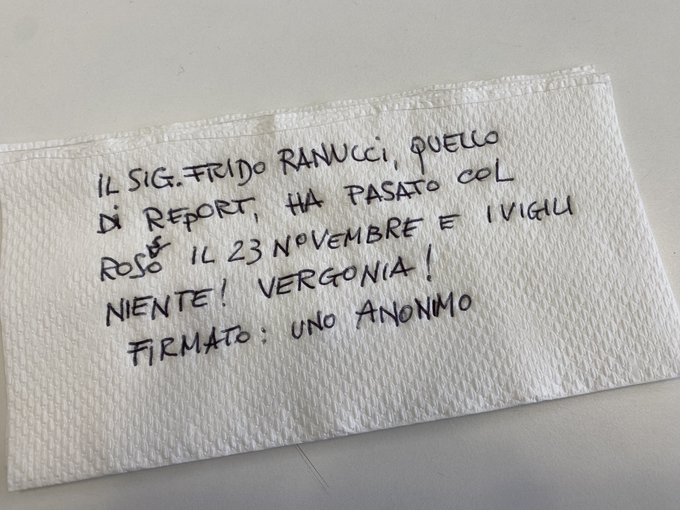 IL SIG. FRIDO RANUCCI, QUELLO
DI REPORT, HA PASATO COL
ROSO IL 23 NOVEMBRE E I VIGILI
NIENTE! VERGONIA!
FIRMATO: UNO ANONIMO